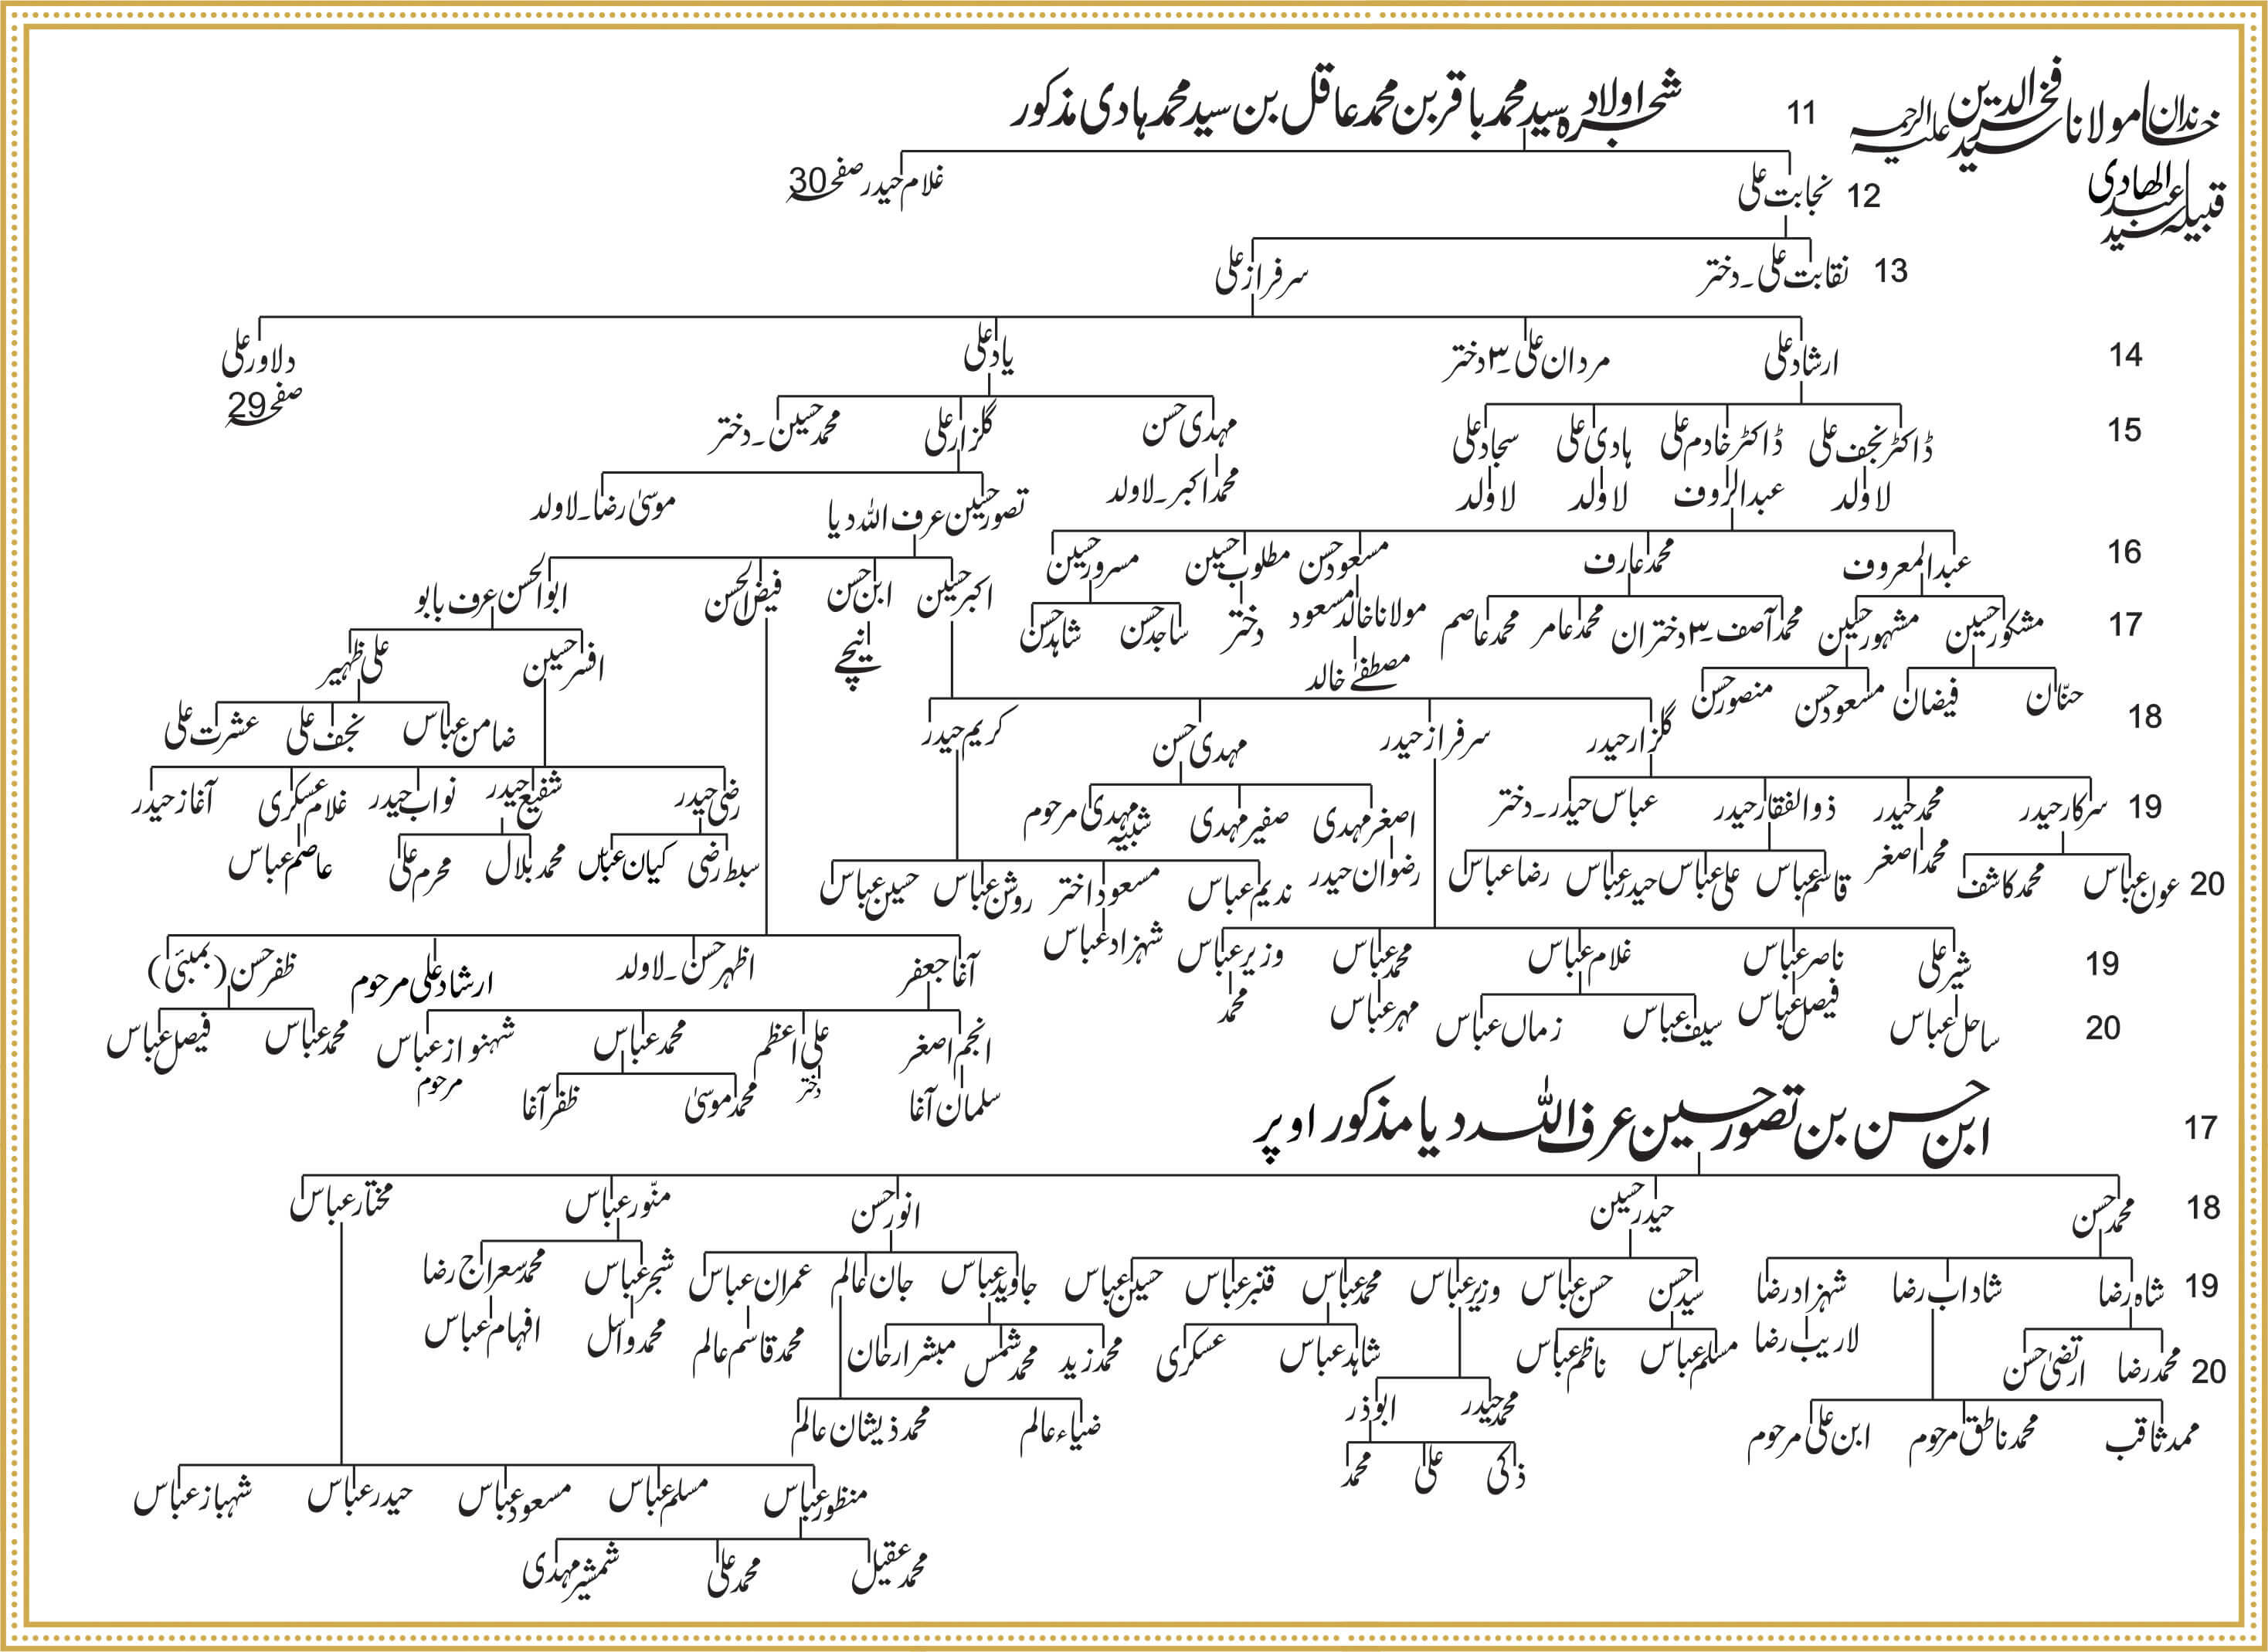 خاندان مولانا سید فخرالدین علیہ الرحمہ
قبیلہ سید عبدالھادی
11 شجرہ اولاد سید محمد باقر بن محمد عاقل بن سید محمد ہادی مذکور
12 نجابت علی غلام حیدر صفحہ 30
13 نقابت علی۔دختر سرفراز علی
14 ارشاد علی مردان علی۔۳ دختر یاد علی دلاور علی
صفحہ 29
15 ڈاکٹر نجف علی ڈاکٹر خادم علی ہادی علی سجاد علی مہدی حسن گلزار علی محمد حسین۔دختر
لاولد عبدالرؤف لاولد لاولد محمد اکبر۔لاولد تصور حسین عرف اللہ دیا موسیٰ رضا۔لاولد
16 عبدالمعروف محمد عارف مسعود حسن مطلوب حسین مسرور حسین اکبر حسین ابن حسن فیض الحسن ابوالحسن عرف بابو
نیچے
17 مشکور حسین مشہور حسین محمد آصف۔۳ دختران محمد عامر محمد عاصم مولانا خالد مسعود دختر ساجد حسن شاہد حسن افسر حسین علی ظہیر
مصطفےٰ خالد
18 حنّان فیضان مسعود حسن منصور حسن گلزار حیدر سرفراز حیدر مہدی حسن کریم حیدر ضامن عباس نجف علی عشرت علی
19 سرکار حیدر محمد حیدر ذوالفقار حیدر عباس حیدر۔دختر اصغر مہدی صفیر مہدی شبیہ مہدی مرحوم رضی حیدر شفیع حیدر نواب حیدر غلام عسکری آغاز حیدر
20 عون عباس محمد کاشف محمد اصغر قاسم عباس علی عباس حیدر عباس رضا عباس رضوان حیدر ندیم عباس مسعود اختر روشن عباس حسین عباس سبط رضی کیان عباس محمد بلال محرم علی عاصم عباس
شہزاد عباس
19 شبر علی ناصر عباس غلام عباس محمد عباس وزیر عباس آغا جعفر اظہر حسن۔لاولد ارشاد علی مرحوم ظفر حسن (بمبئی)
20 ساحل عباس فیصل عباس سیف عباس زماں عباس مہر عباس محمد انجم اصغر علی اعظم محمد عباس شہنواز عباس محمد عباس فیصل عباس
مرحوم
سلمان آغا دختر محمد موسیٰ ظفر آغا
17 ابن حسن بن تصور حسین عرف اللہ دیا مذکور اوپر
18 محمد حسن حیدر حسین انور حسن منّور عباس مختار عباس
19 شاہ رضا شاداب رضا شہزاد رضا سید حسن حسن عباس وزیر عباس محمد عباس قنبر عباس حسین عباس جاوید عباس جان عالم عمران عباس شجر عباس محمد معراج رضا
20 محمد رضا ارتضیٰ حسن لاریب رضا مسلم عباس ناظم عباس شاہد عباس عسکری محمد زید محمد شمس مبشر ارحان محمد قاسم عالم محمد واسل افہام عباس
محمد ثاقب محمد ناطق مرحوم ابن علی مرحوم محمد حیدر ابوذر ضیاء عالم محمد ذیشان عالم
ذکی علی محمد
منظور عباس مسلم عباس مسعود عباس حیدر عباس شہباز عباس
محمد عقیل محمد علی شمشیر مہدی